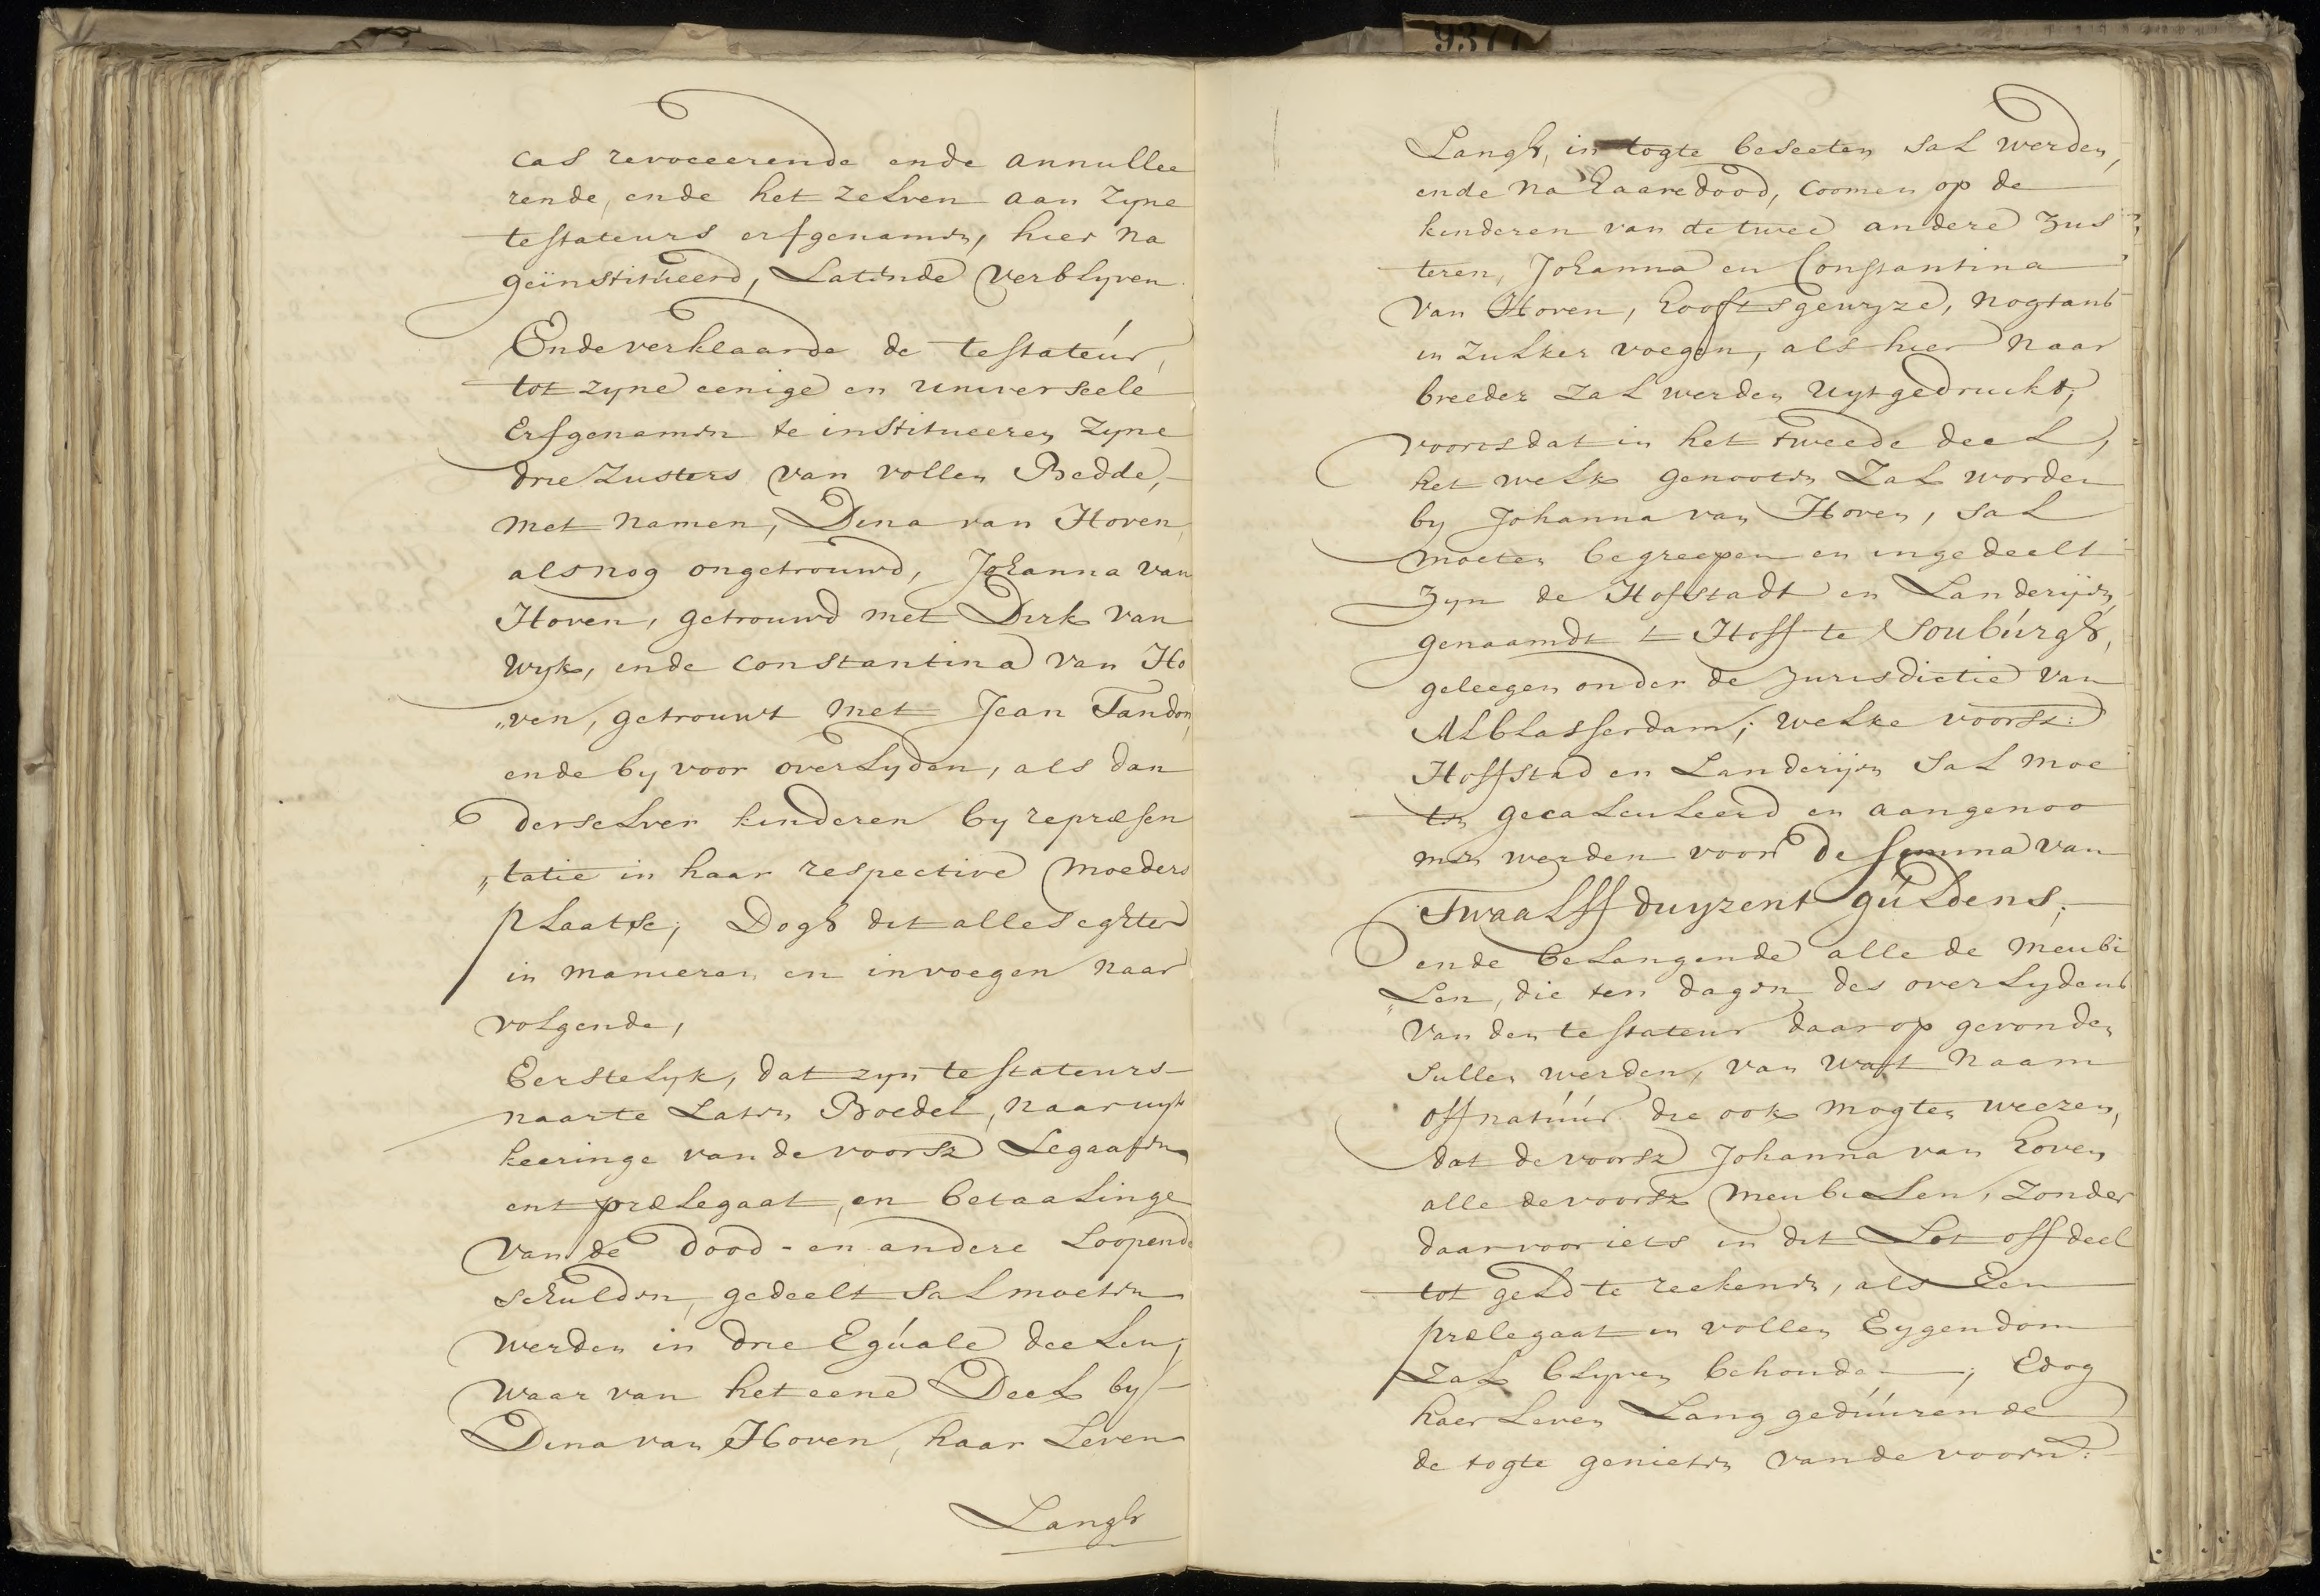 cas revoceerende ende annullee
rende, ende het zelven aan zyne
testateurs erfgenamen, hier na
geïnstitúeerd, Latende verblyven
Ende verklaarde de testateúr,
tot zyne eenige en universeele
Erfgenamen te institueeren zyne
drie Zusters van vollen Bedde,
met namen, Dina van Hoven
als nog ongetrouwd, Johanna van
Hoven, getrouwd met Dirk van
Wyk, ende Constantina van Ho
„ven, getrouwt met Jean Tandon,
ende by voor overlyden, als dan
derselver kinderen by repræsen
„tatie in haar respective moeders
plaatse; Dogh dit alles egter
in manieren en invoegen naar
volgende,
Eerstelyk, dat zyn testateurs
naar te Laten Boedel, naar uyt
keeringe van de voorsz Legaaten
ent prælegaat, en betaalinge
van de dood- en andere Loopende
schulden, gedeelt sal moeten
werden in drie Egúale deelen,
waar van het eene Deel by
Dina van Hoven, haar Leven
Langh
9377
Langh, in togte beseeten sal werden,
ende na haare dood, coomen op de
kinderen van de twee andere Zus
teren, Johanna en Constantina
van Hoven, hooftsgewyze, nogtans
in zulker voegen, als hier naar
breeder zal werden uytgedruckt,
voorts dat in het tweede deel,
het welk genooten zal worden
by Johanna van Hoven, sal
moeten begreepen en ingedeelt
zyn de Hofstadt en Landeryen
genaamdt t Hoff te Soubúrgh,
geleegen onder de Jurisdictie van
Alblasserdam; welke voorsz:
Hoffstad en Landeryen sal moe
ten gecalculeerd en aangenoo
men werden voor de somma van
Twaalff duyzent gúldens;
ende belangende alle de meubi
„Len, die ten dagen des overlydens
van den testateur daar op gevonden
sullen werden, van wat naam
off natúúr die ook mogten weezen,
dat de voorsz Johanna van hoven
alle de voorsz meubilen, zonder
daar voor iets in dit Lot off deel
tot geld te reekenen, als Een
prælegaat in vollen Eygendom
zal blyven behouden; Edog
haer Leven Lang gedúúrende
de togte genieten van de voorn: